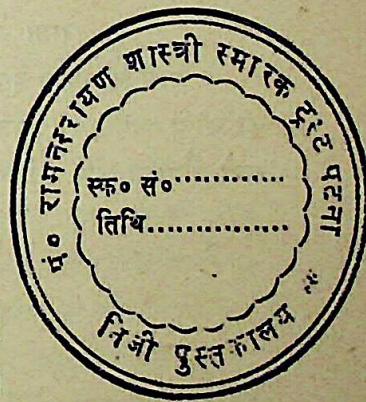 पं० रामनारायण शास्त्री स्मारक ट्रस्ट पटना
स्क० सं०............
तिथि...............
निजी पुस्तकालय